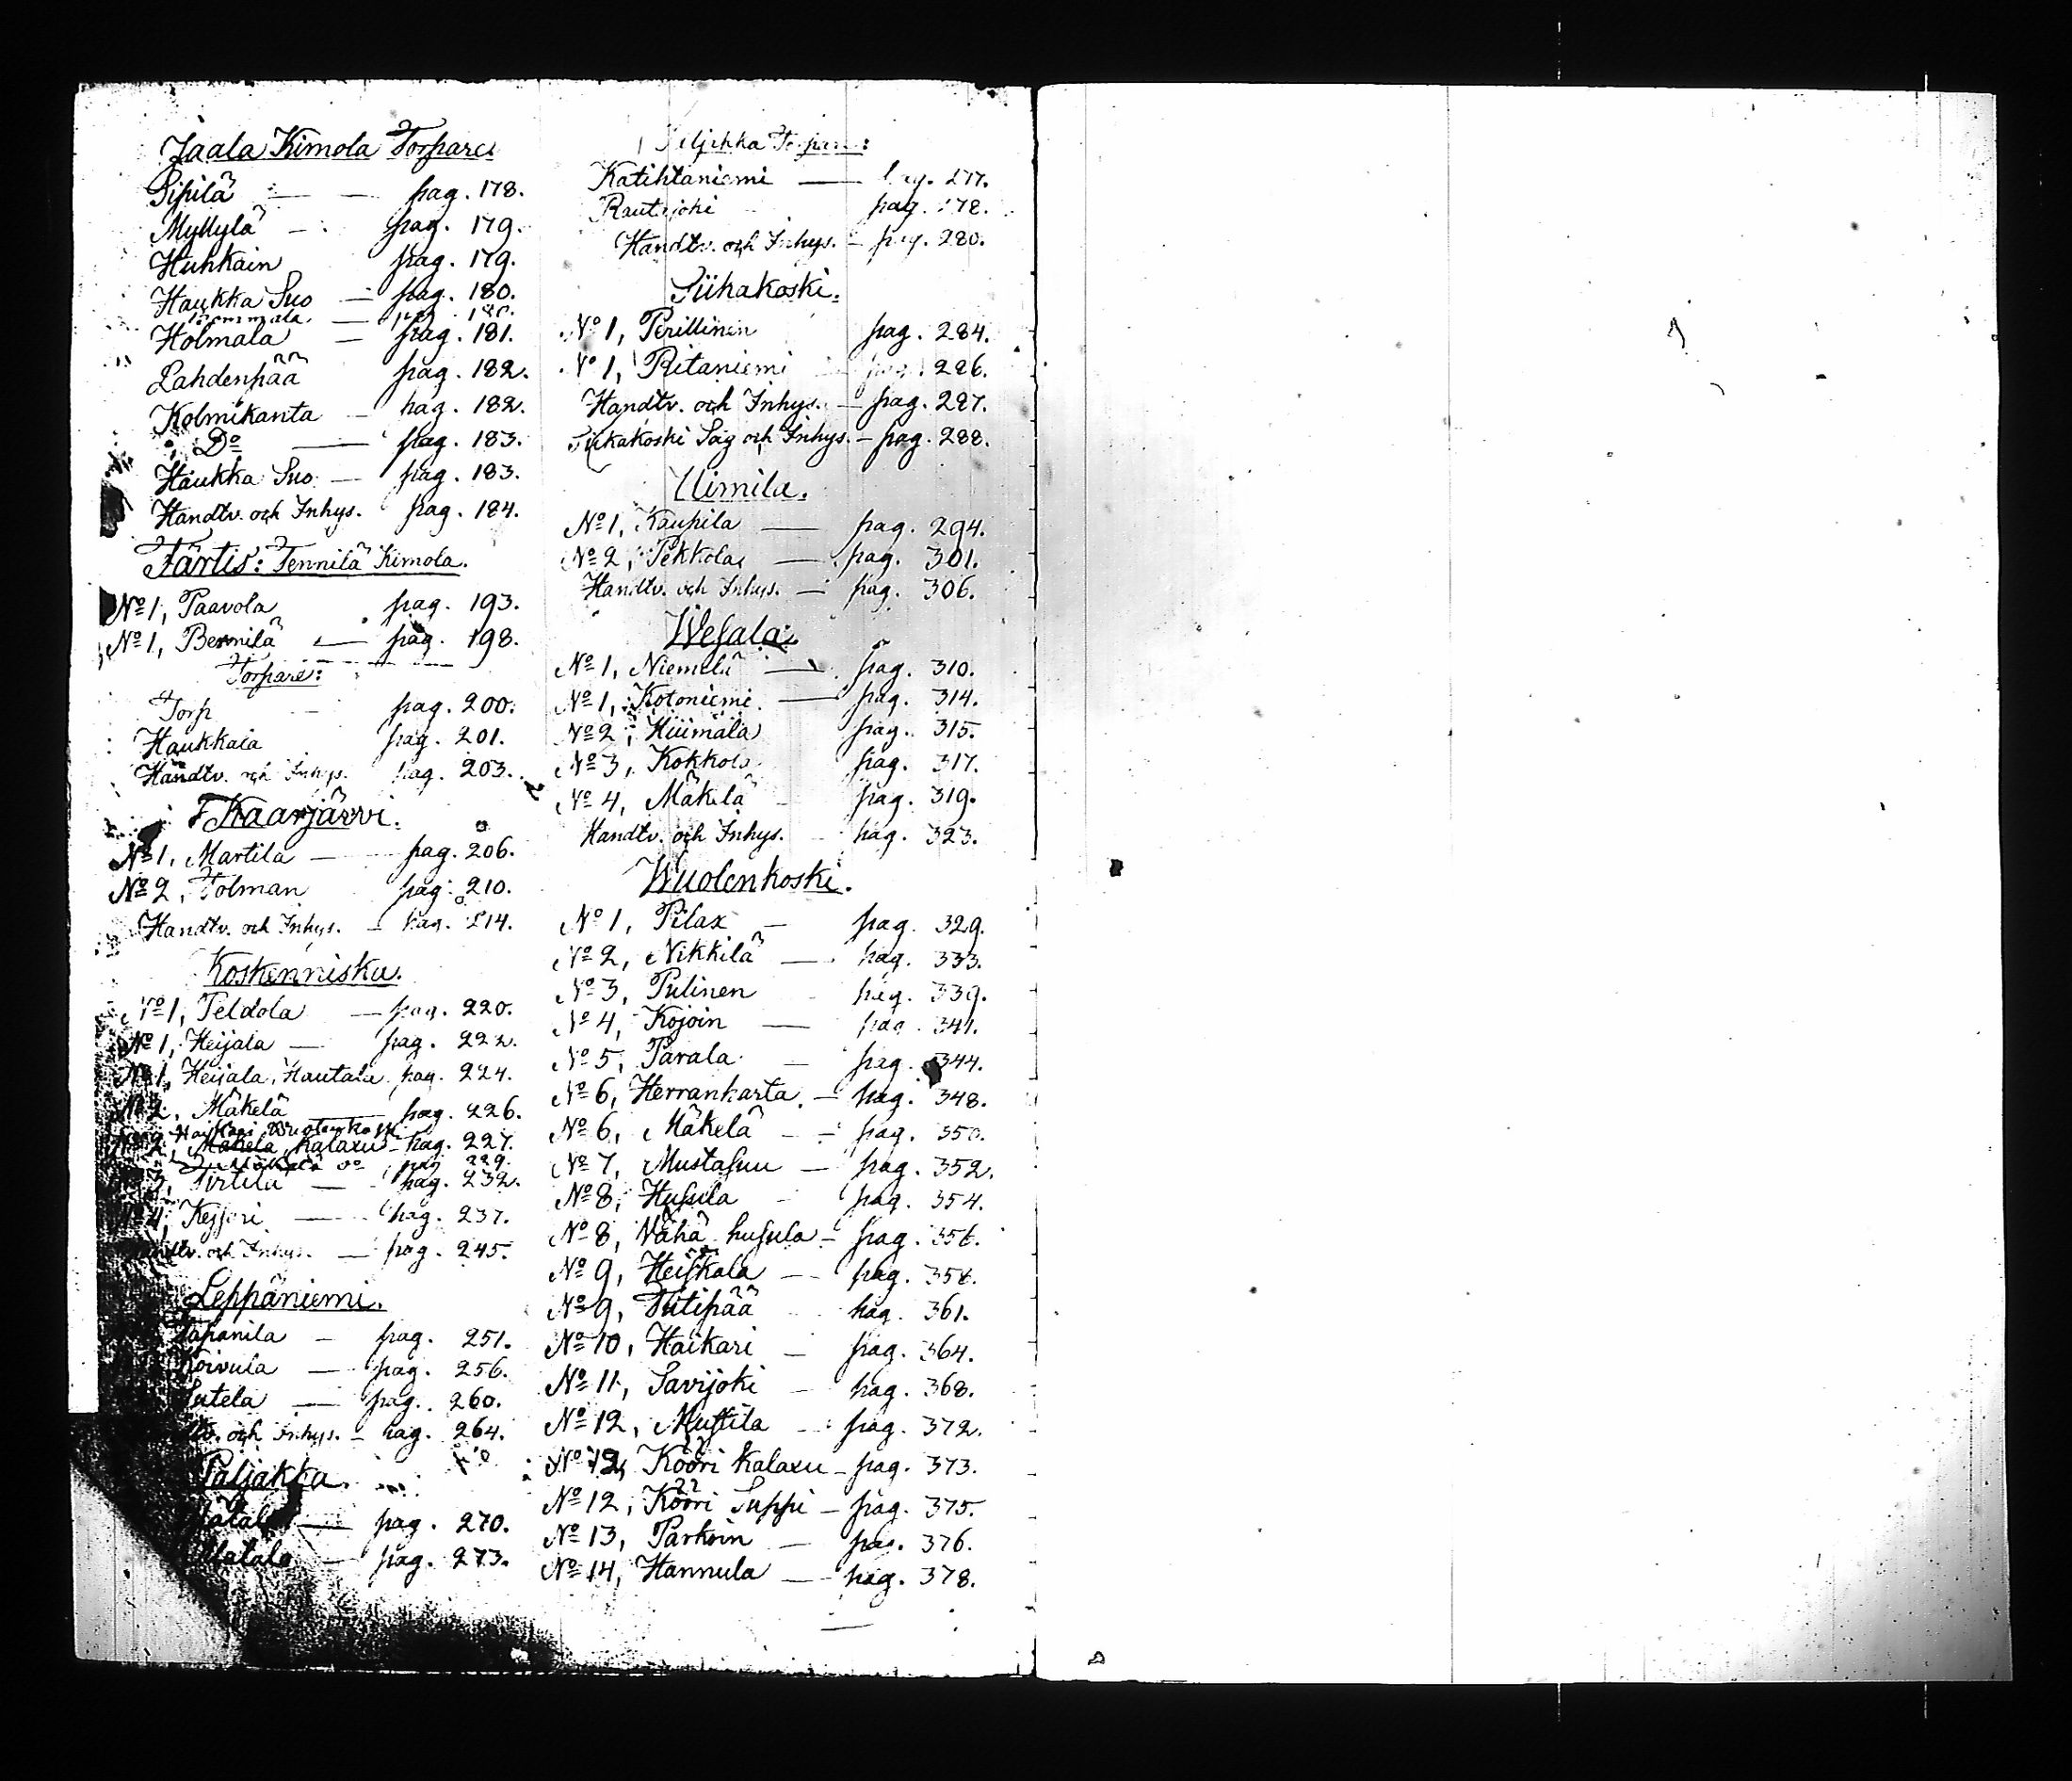 Jaala Kimola Torpare:
Pipilä — — pag. 178.
Myllylä — pag. 179.
Huhkain pag. 179.
Haukka Suo — pag. 180.
— pag. 180.
Holmala — pag. 181.
Lahdenpää pag. 182.
Kolmikanta — pag. 182.
Do — pag. 183.
Haukka Suo — pag. 183.
Handtv. och Inhys. pag. 184.
Färtis: Tennilä Kimola.
No 1, Paavola pag. 193.
No 1, — pag. 198.
Torpare:
Torp — pag. 200.
Haukkala pag. 201.
Handtv. och Inhys. pag. 203.
Kaarjärvi.
No 1, Martila — pag. 206.
No 2, Tolman pag. 210.
Handtv. och Inhys. — pag. 214.
Koskenniska.
No 1, Peldola — pag. 220.
No 1, Heijala — pag. 222.
No 1, Heijala, Hautala pag. 224.
No 2, Mäkelä — pag. 226.
Haikari Wuolenkoski
No 2, Mäkelä, Kalaxu — pag. 227.
Mäkelä Do pag. 229.
No 3, — pag. 232.
No 4, — pag. 237.
Handtv. och Inhys. — pag. 245.
Leppäniemi.
Tapanila — pag. 251.
Koivula — pag. 256.
Sutela — pag. 260.
och Inhys. — pag. 264.
Paljakka.
— pag. 270.
Matala — pag. 273.
Paljakka Torpare:
Katihtaniemi — pag. 277.
Rautjoki pag. 278.
Handtv. och Inhys. — pag. 280.
Siikakoski.
No 1, Perillinen pag. 284.
No 1, Pitaniemi — pag. 286.
Handtv. och Inhys. — pag. 287.
Siikakoski Såg och Inhys. — pag. 288.
Uimila.
No 1, Kaupila — pag. 294.
No 2, Pekkola — pag. 301.
Handtv. och Inhys. — pag. 306.
Wesala.
No 1, Niemelä — pag. 310.
No 1, Kotoniemi — pag. 314.
No 2, Hiiimälä pag. 315.
No 3, Kokkola pag. 317.
No 4, Mäkelä — pag. 319.
Handtv. och Inhys. pag. 323.
Wuolenkoski.
No 1, Pilax — pag. 329.
No 2, Nikkilä — pag. 333.
No 3, Pulinen pag. 339.
No 4, Kojoin — pag. 341.
No 5, Parala — pag. 344.
No 6, Herrankarta — pag. 348.
No 6, Mäkelä — pag. 350.
No 7, Mustasuu — pag. 352.
No 8, Husula — pag. 354.
No 8, Vähä husula — pag. 356.
No 9, Heiskala — pag. 358.
No 9, Tiitipää pag. 361.
No 10, Haikari — pag. 364.
No 11, Savijoki — pag. 368.
No 12, Mustila — pag. 372.
No 12, Kööri Kalaxu — pag. 373.
No 12, Kööri Suppi — pag. 375.
No 13, Parkoin — pag. 376.
No 14, Hannula — pag. 378.